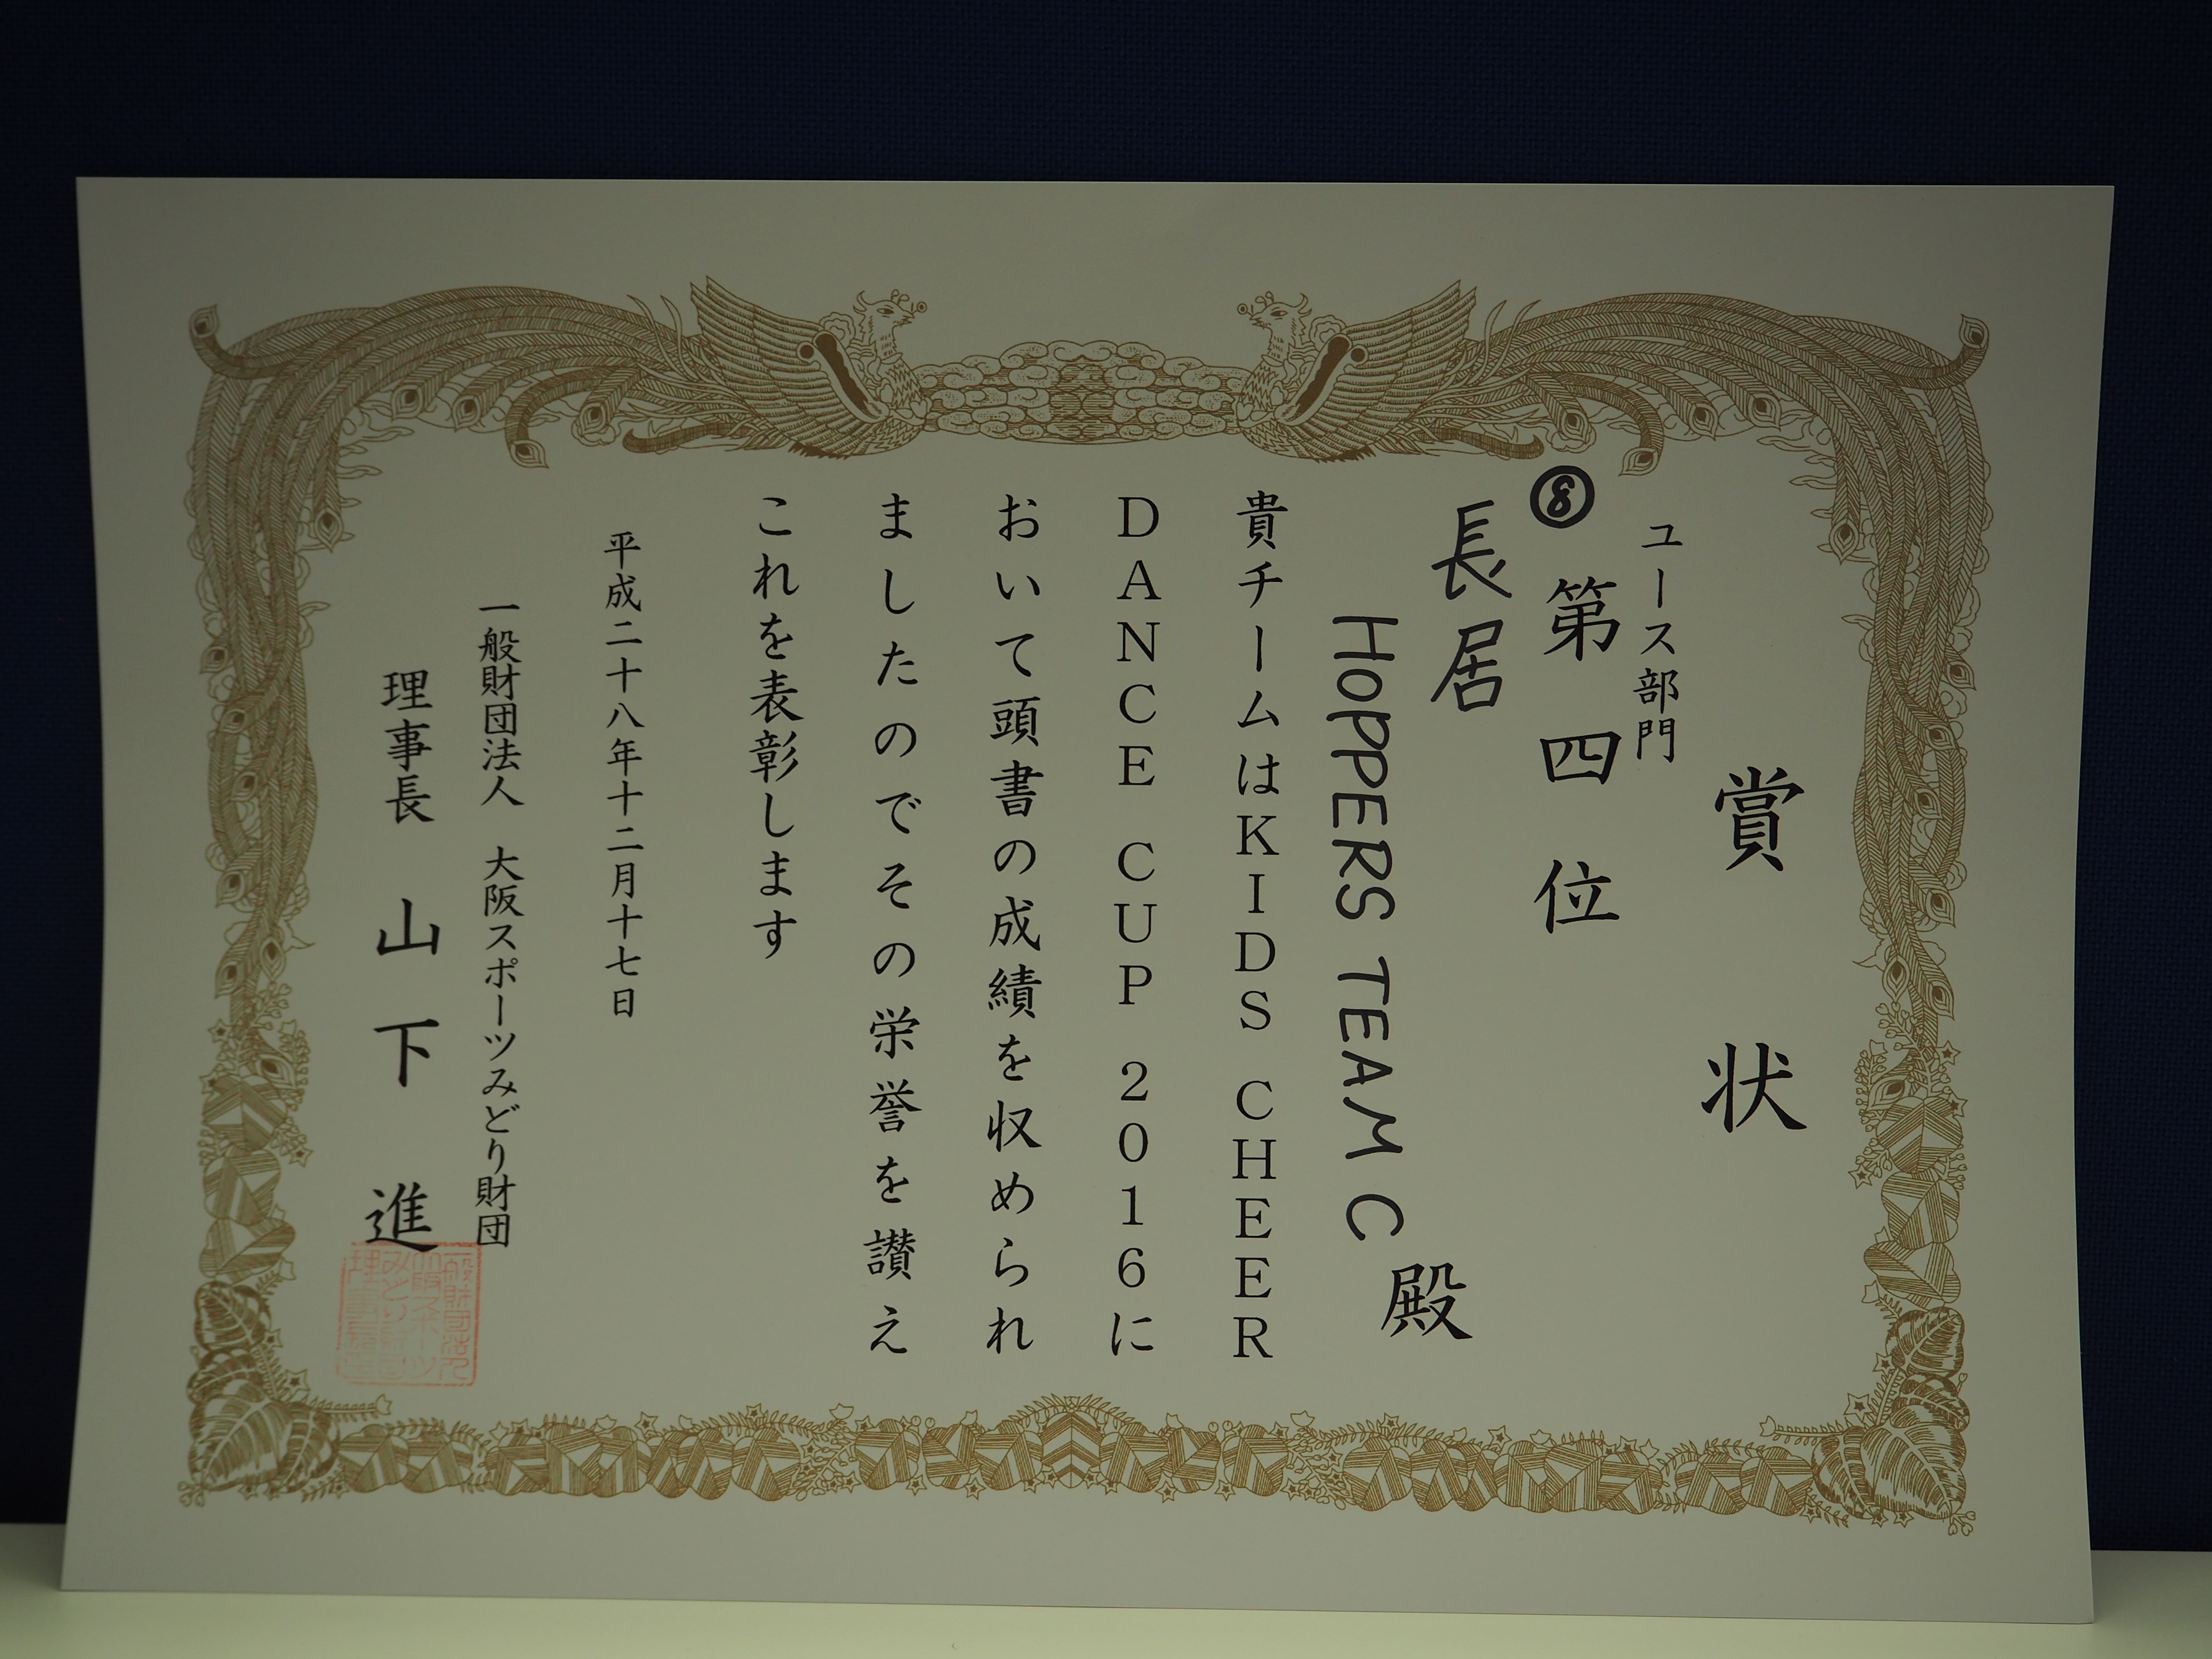 賞状
ユース部門
⑧ 第四位
長居
HOPPERS TEAM C 殿
貴チームはKIDS CHEER
DANCE CUP 2016に
おいて頭書の成績を収められ
ましたのでその栄誉を讃え
これを表彰します
平成二十八年十二月十七日
一般財団法人 大阪スポーツみどり財団
理事長 山下 進